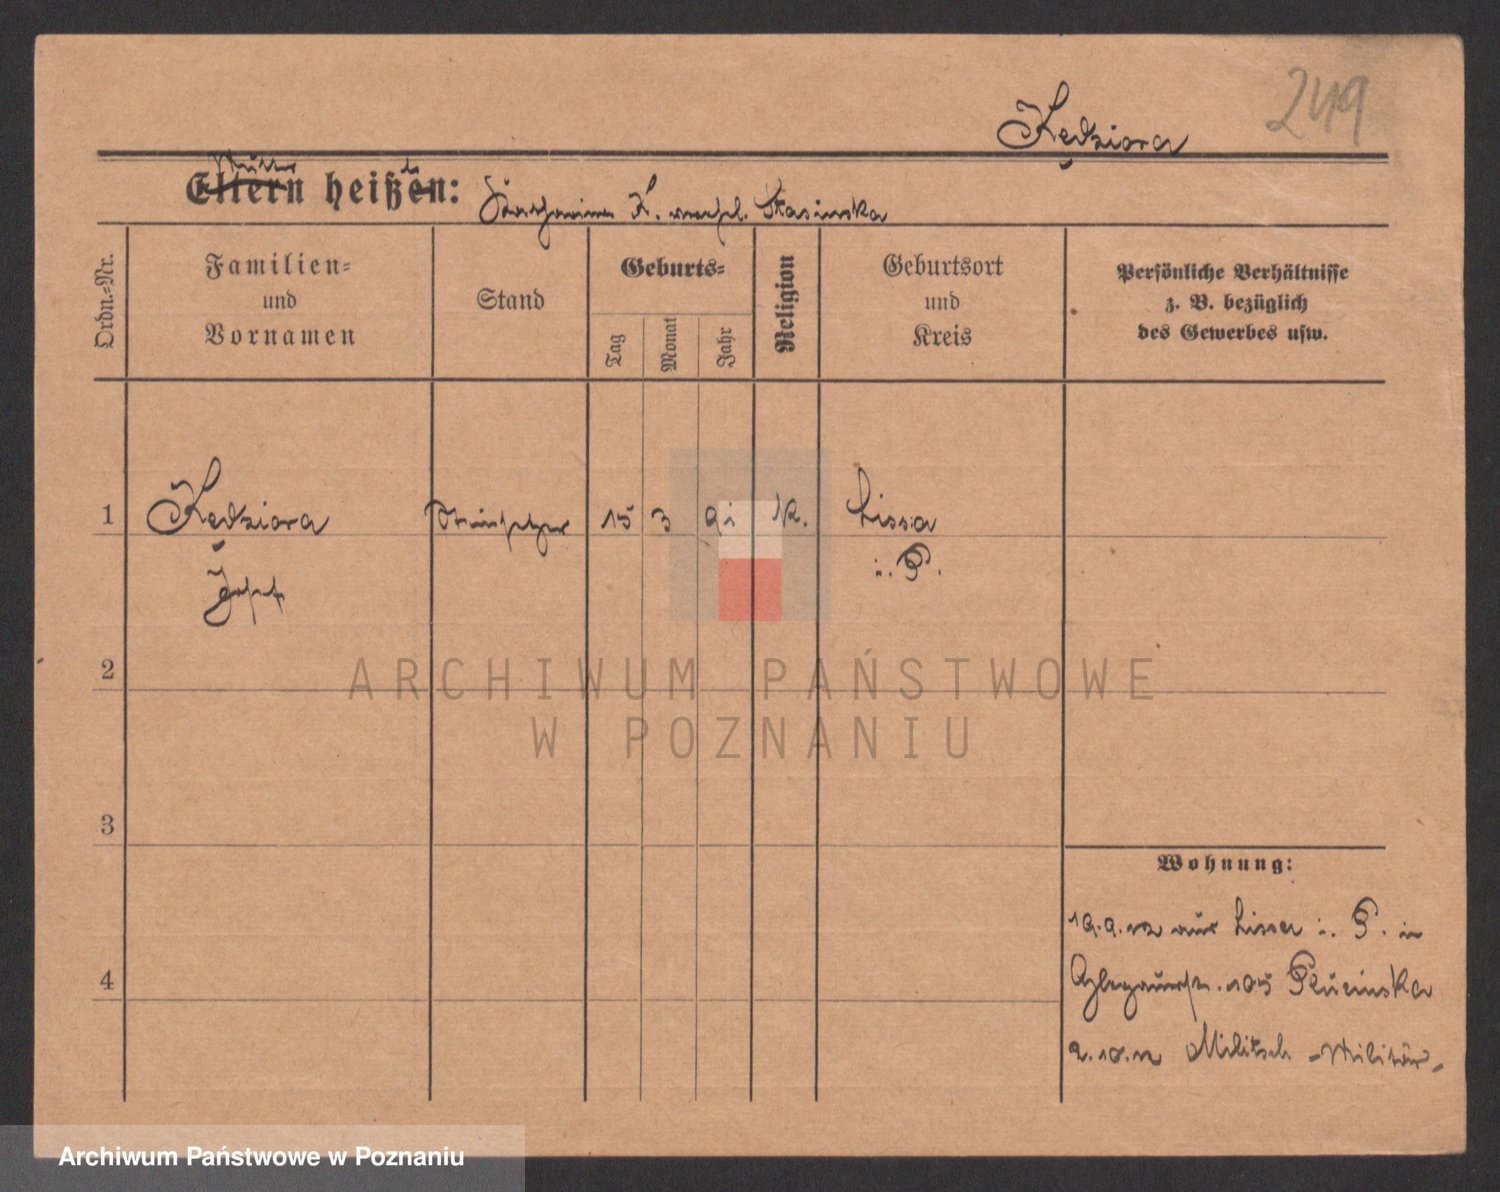 249
Kędziora
Mutter
Eltern heißen: Katharina K. verehl. Stasinska
Ordn.-Nr.
Familien-
und
Vornamen
Stand
Geburts-
Tag
Monat
Jahr
Religion
Geburtsort
und
Kreis
Persönliche Verhältnisse
z. B. bezüglich
des Gewerbes usw.
1 Kędziora Steinsetzer 15 3 91 k. Lissa
Josef i. P.
2
3
4
Wohnung:
19.9.12 aus Lissa i. P. in
105 Plucinska
2.10.12 Militsch - Militär -
ARCHIWUM PAŃSTWOWE
W POZNANIU
Archiwum Państwowe w Poznaniu